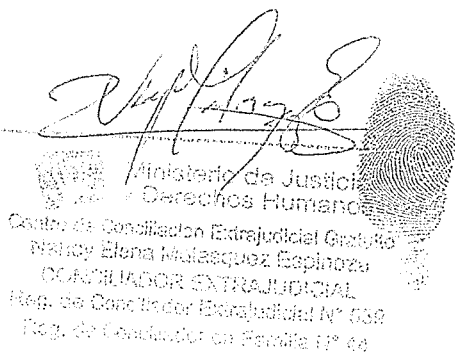 Ministerio de Justicia
y Derechos Humanos
Centro de Conciliación Extrajudicial Gratuito
Nancy Elena Malasquez Espinoza
CONCILIADOR EXTRAJUDICIAL
Reg. de Conciliador Extrajudicial N° 539
Reg. de Conciliador en Familia N° 44